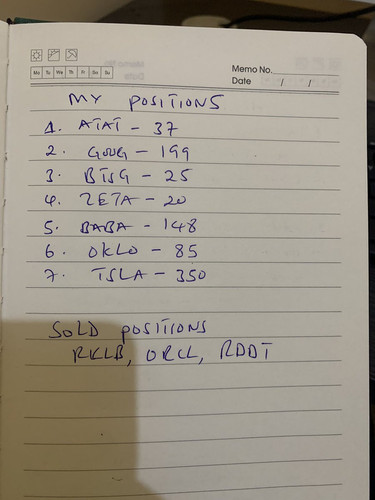 Memo No.
Mo Tu We Th Fr Sa Su
Date / /
MY POSITIONS
1. ATAT - 37
2. GOOG - 199
3. BTSG - 25
4. ZETA - 20
5. BABA - 148
6. OKLO - 85
7. TSLA - 350
SOLD POSITIONS
RKLB, ORCL, RDDT